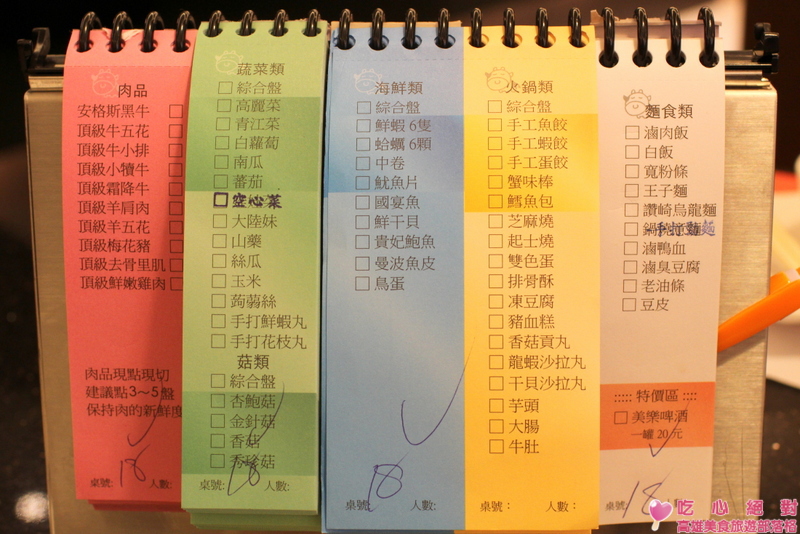 肉品
安格斯黑牛
頂級牛五花
頂級牛小排
頂級小犢牛
頂級霜降牛
頂級羊肩肉
頂級羊五花
頂級梅花豬
頂級去骨里肌
頂級鮮嫩雞肉
肉品現點現切
建議點3～5盤
保持肉的新鮮度
18
桌號: 人數:
蔬菜類
綜合盤
高麗菜
青江菜
白蘿蔔
南瓜
蕃茄
空心菜
大陸妹
山藥
絲瓜
玉米
蒟蒻絲
手打鮮蝦丸
手打花枝丸
菇類
綜合盤
杏鮑菇
金針菇
香菇
秀珍菇
18
桌號: 人數:
海鮮類
綜合盤
鮮蝦 6隻
蛤蠣 6顆
中卷
魷魚片
國宴魚
鮮干貝
貴妃鮑魚
曼波魚皮
鳥蛋
18
桌號 人數:
火鍋類
綜合盤
手工魚餃
手工蝦餃
手工蛋餃
蟹味棒
鱈魚包
芝麻燒
起士燒
雙色蛋
排骨酥
凍豆腐
豬血糕
香菇貢丸
龍蝦沙拉丸
干貝沙拉丸
芋頭
大腸
牛肚
桌號： 人數：
麵食類
滷肉飯
白飯
寬粉條
王子麵
讚崎烏龍麵
滷鴨血
滷臭豆腐
老油條
豆皮
::::: 特價區 :::::
美樂啤酒
一罐 20 元
18
桌號
吃心絕對
高雄美食旅遊部落格